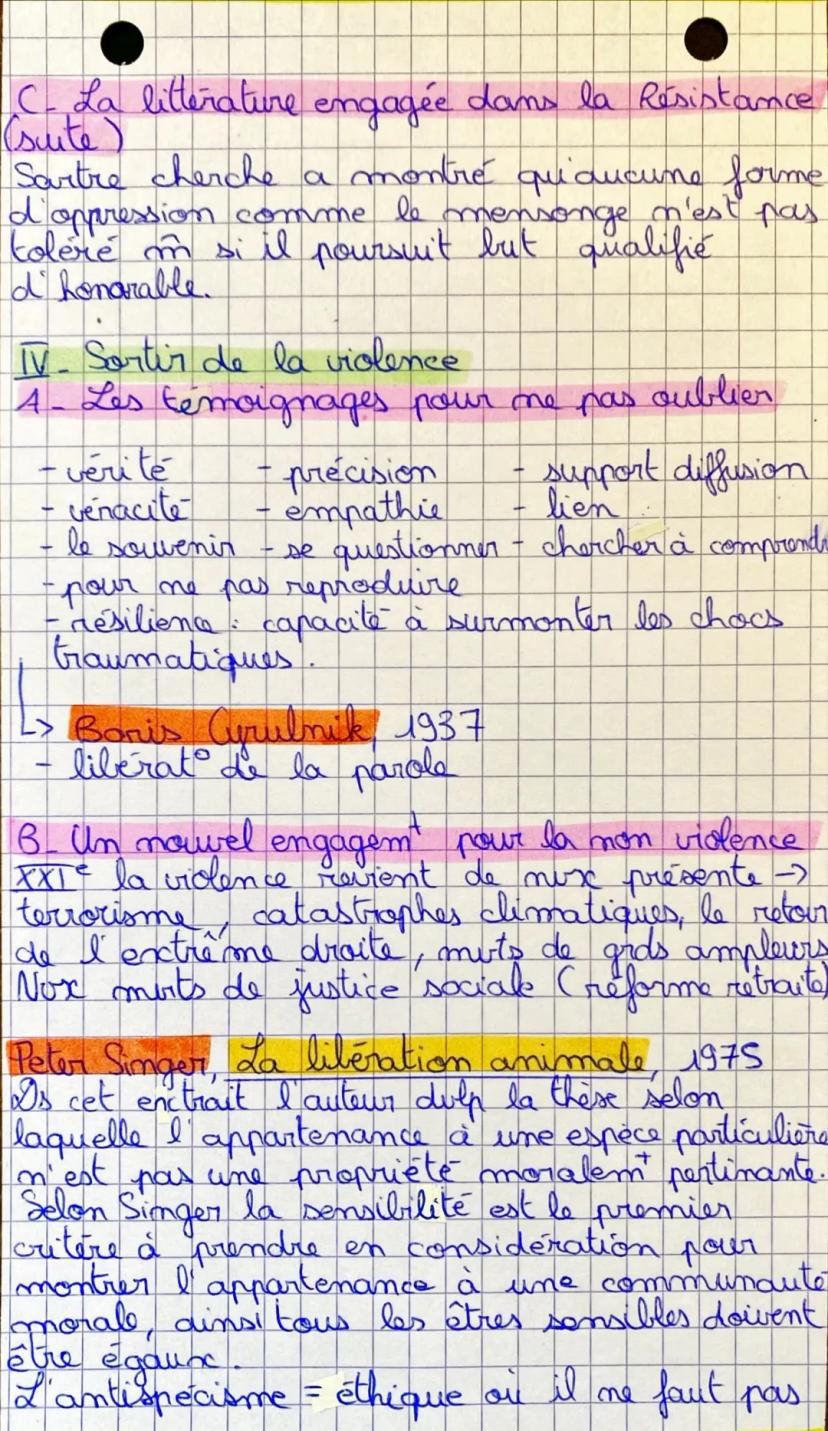 C- La littérature engagée dans la Résistance
(suite)
Sartre cherche a montré qu'aucune forme
d'oppression comme le mensonge n'est pas
toléré m̂ si il poursuit but qualifié
d'honorable.
IV- Sortir de la violence
A- Les témoignages pour ne pas oublier
- vérité - précision - support diffusion
- véracité - empathie - lien
- le souvenir - se questionner - chercher à comprendr
- pour ne pas reproduire
- résilience : capacité à surmonter les chocs
traumatiques.
↳ Boris Cyrulnik, 1937
- libérat° de la parole
B- Un nouvel engagemt pour la non violence
XXIe la violence revient de nvx présente →
terrorisme, catastrophes climatiques, le retour
de l'extrême droite, mvts de grds ampleurs
Nvx mvts de justice sociale (réforme retraite)
Peter Singer, La libération animale, 1975
Ds cet extrait l'auteur dvlp la thèse selon
laquelle l'appartenance à une espèce particulière
n'est pas une propriété moralemt pertinante.
Selon Singer la sensibilité est le premier
critère à prendre en considération pour
montrer l'appartenance à une communauté
morale, ainsi tous les êtres sensibles doivent
être égaux.
L'antispécisme = éthique où il ne faut pas